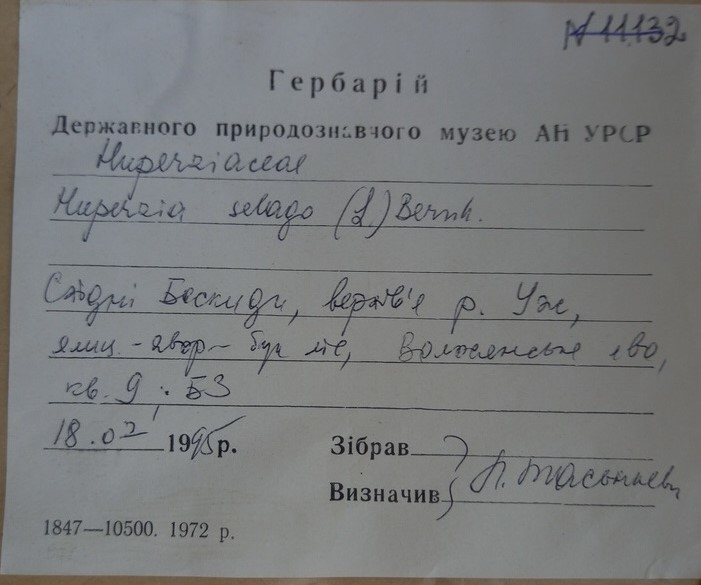 N 11132
Гербарій
Державного природознавчого музею АН УРСР
Huperziaceae
Huperzia selago (L) Bernh.
Східні Бескиди, верхів'я р. Уж,
ялиц.-явор-бук ліс, Волосянське л-во,
кв. 9; Б3
18.07 1995 р.
Зібрав
Визначив
1847—10500. 1972 р.